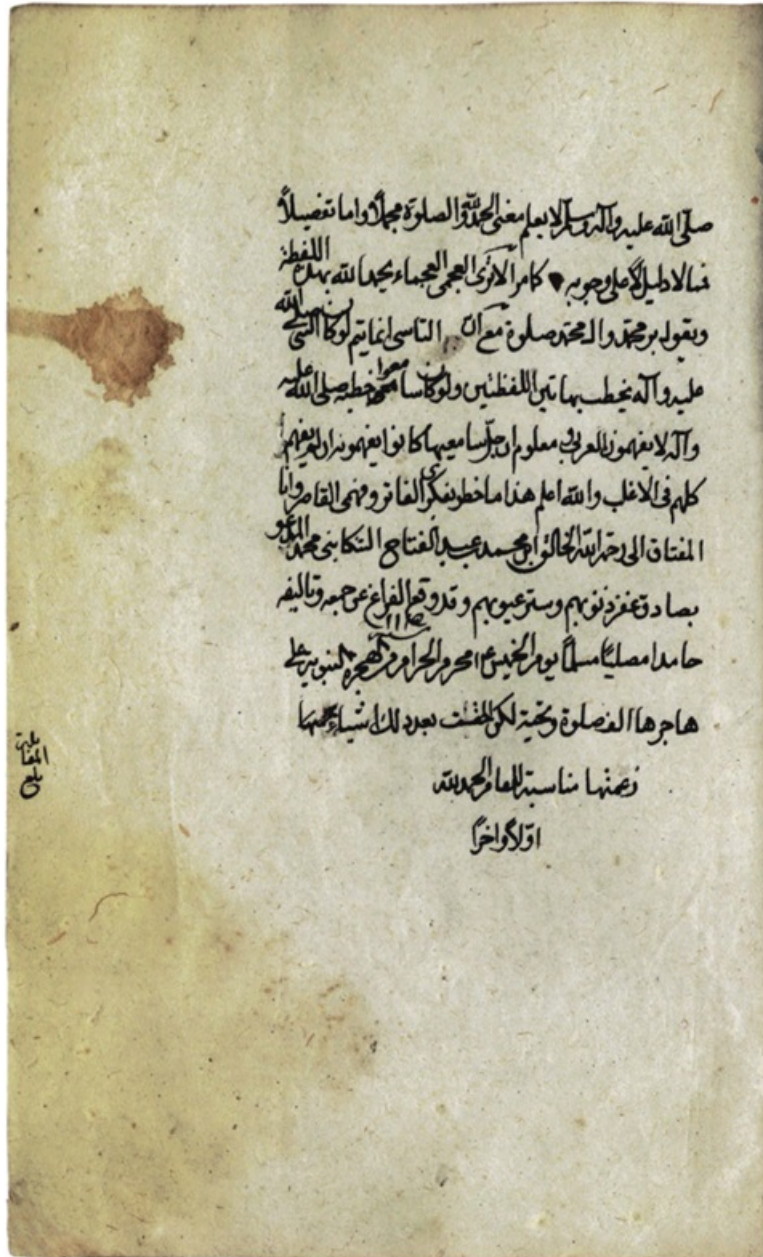 صلّى الله عليه وآله وسلم لا يعلم معنى الحمد لله والصلوة مجملاً واما تفصيلاً
فما لا دليل لا على وجوبه كما مر الا ترى العجمى العجماء يحمد الله بهذه اللفظة
وبقوله بر محمد وال محمد صلوة مع ان التاسى انما يتم لو كان النبي صلى الله
عليه وآله يخطب بهاتين اللفظتين ولو كان سامعوا خطبه صلى الله عليه
وآله لا يفهمون العربى ومعلوم ان جلّ سامعيها كانوا يفهمونه ان لم يفهم
كلهم فى الاغلب والله اعلم هذا ما خطر بفكرى الفاتر وفهمى القاصر وانا
المفتاق الى رحمة الله الخالق ابن محمد عبد الفتاح التنكابنى محمد المدعو
بصادق غفر ذنوبهم وستر عيوبهم وقد وقع الفراغ عن جمعه وتاليفه
حامدا مصلياً مسلماً يوم الخميس محرم الحرام من الهجرة النبوية على
هاجرها الف صلوة وتحية لكن الحقت بعد ذلك اشياء
زعمتها مناسبة للمقام الحمد لله
اوّلاً واخراً
بلغ
المقابلة